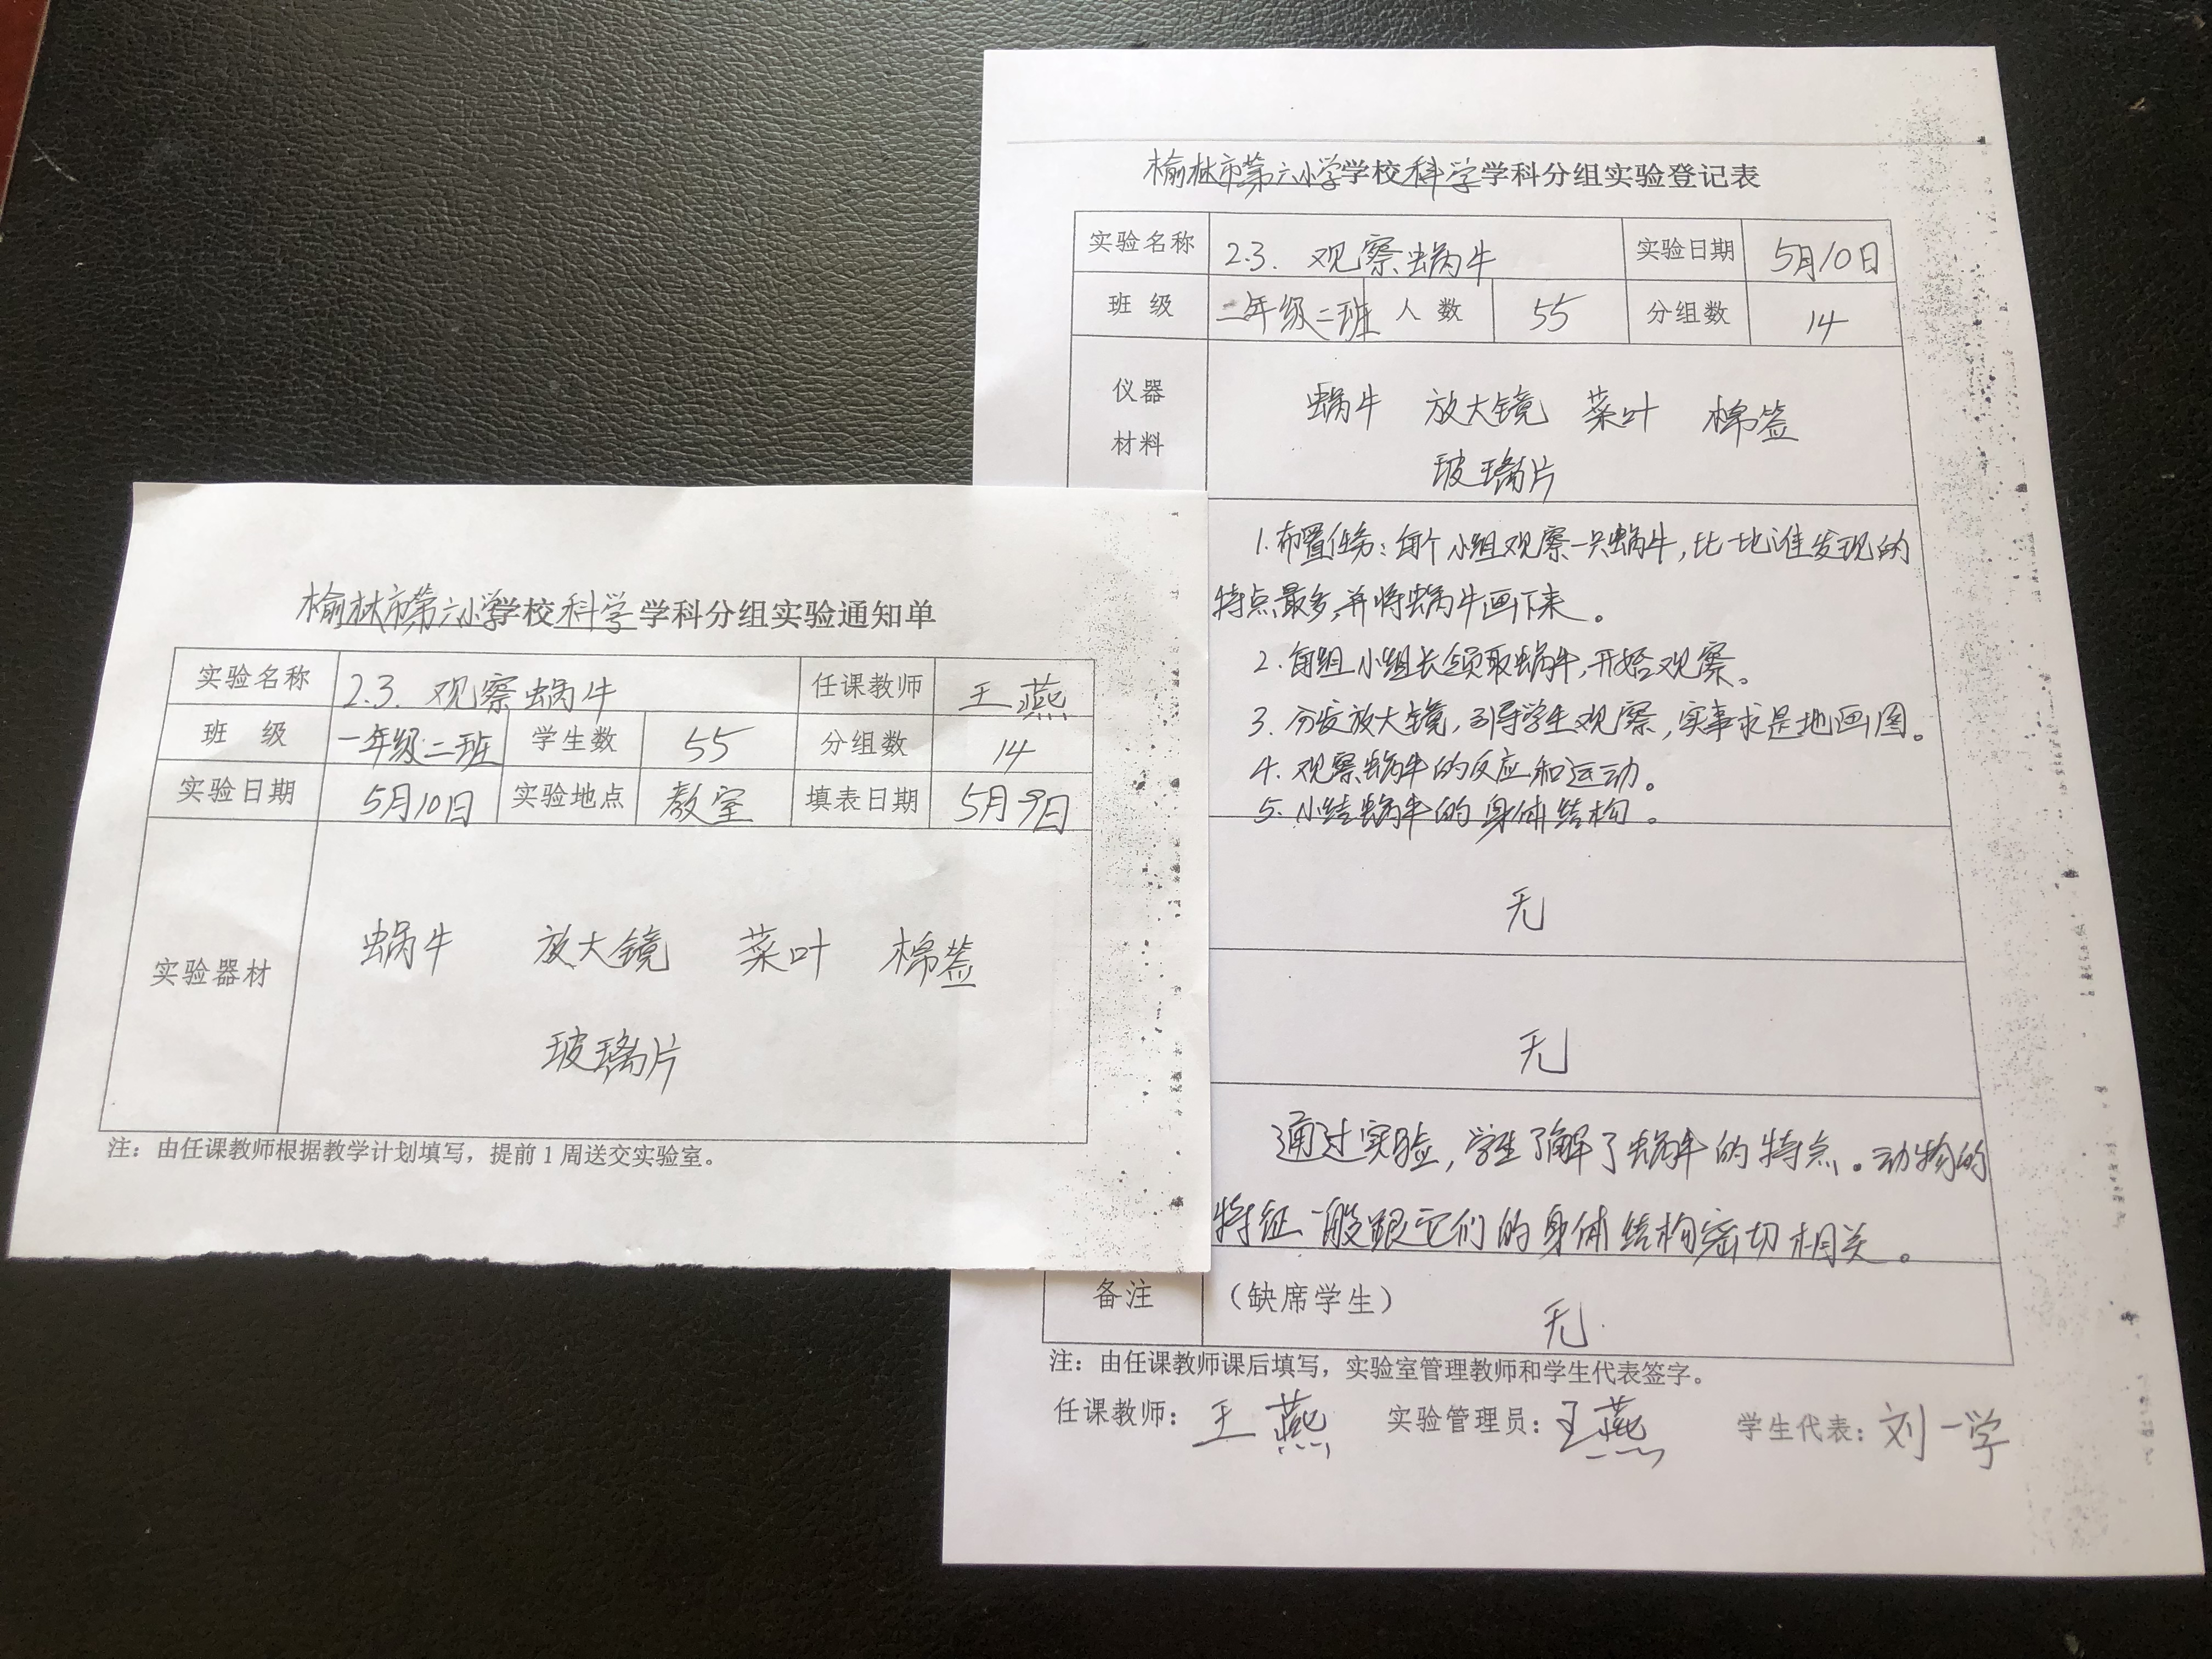 榆林市第六小学学校科学学科分组实验通知单
实验名称 2.3. 观察蜗牛 任课教师 王燕
班 级 一年级二班 学生数 55 分组数 14
实验日期 5月10日 实验地点 教室 填表日期 5月9日
实验器材
蜗牛 放大镜 菜叶 棉签
玻璃片
注：由任课教师根据教学计划填写，提前1周送交实验室。
榆林市第六小学学校科学学科分组实验登记表
实验名称 2.3. 观察蜗牛 实验日期 5月10日
班 级 一年级二班 人 数 55 分组数 14
仪器
材料
蜗牛 放大镜 菜叶 棉签
玻璃片
1.布置任务：每个小组观察一只蜗牛，比一比谁发现的
特点最多，并将蜗牛画下来。
2.每组小组长领取蜗牛，开始观察。
3.分发放大镜，引导学生观察，实事求是地画图。
4.观察蜗牛的反应和运动。
5.小结蜗牛的身体结构。
无
无
通过实验，学生了解了蜗牛的特点。动物的
特征一般跟它们的身体结构密切相关。
备注 （缺席学生） 无.
注：由任课教师课后填写，实验室管理教师和学生代表签字。
任课教师：王燕 实验管理员：王燕 学生代表：刘一学